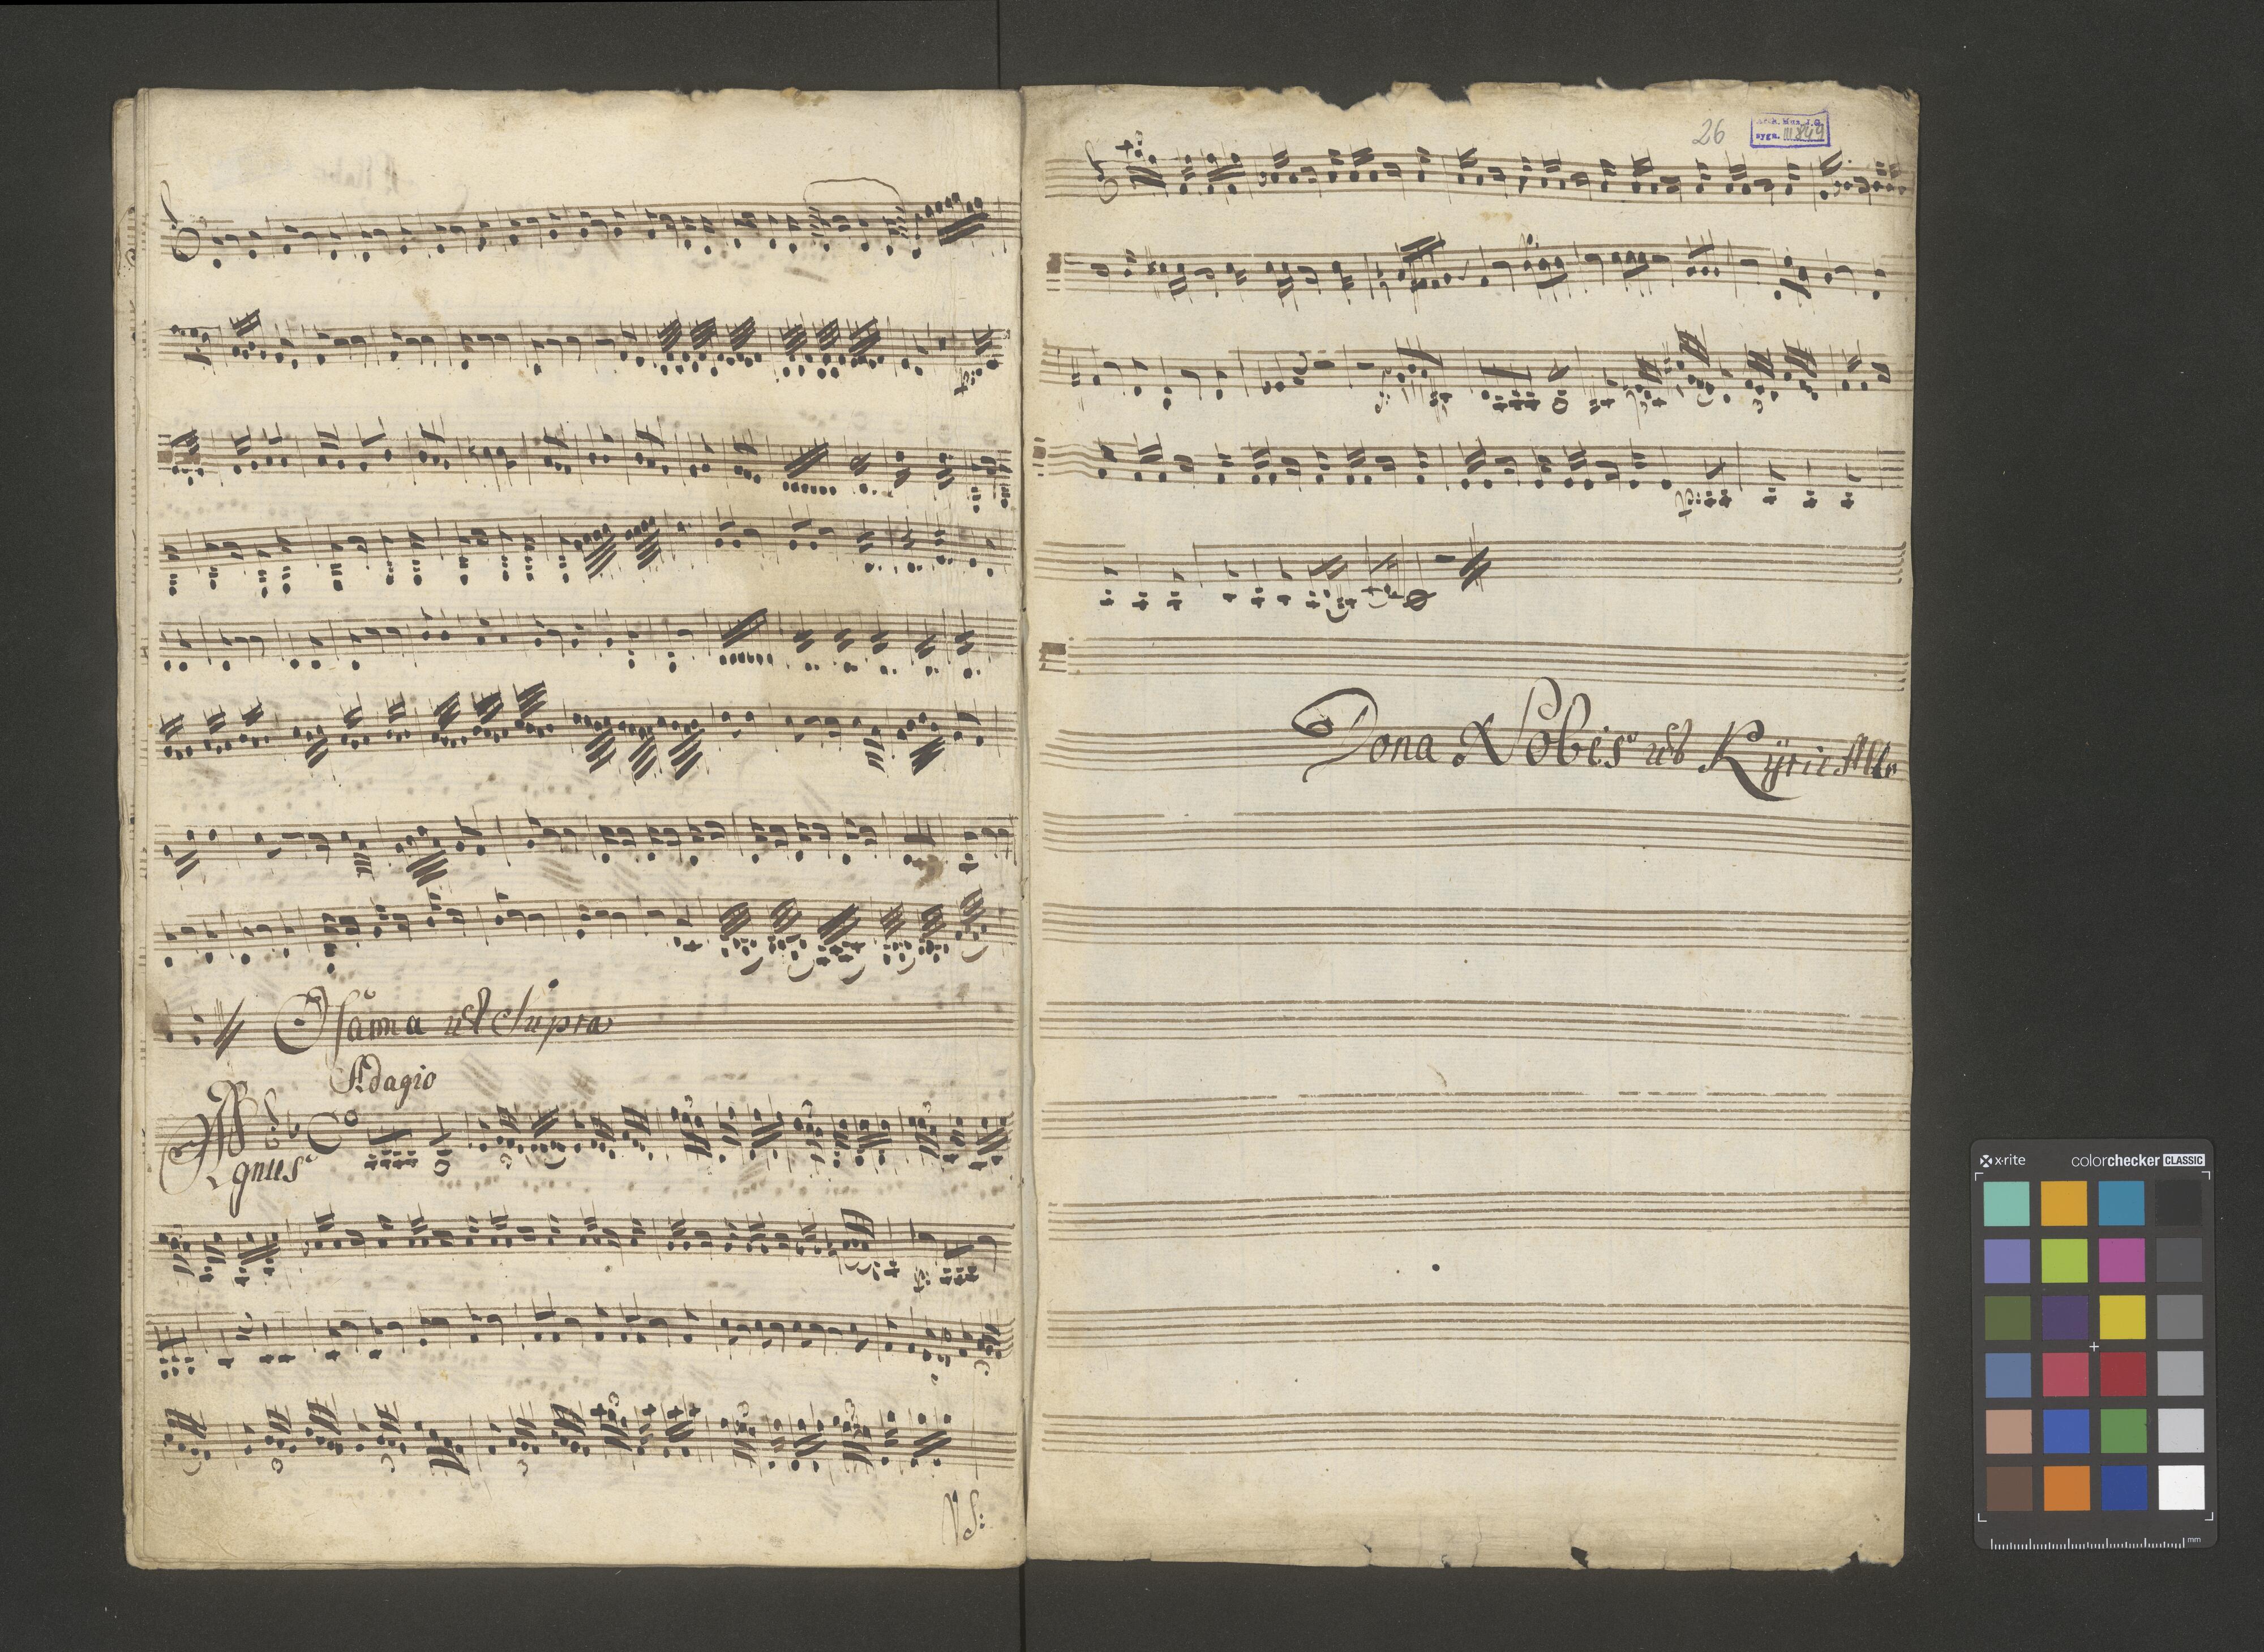 Osanna ut Supra
Adagio
Agnus
VS:
26
Arch. Mus. J. G.
sygn. III 849
Dona Nobis ut Kÿrie Allo
x-rite colorchecker CLASSIC
mm